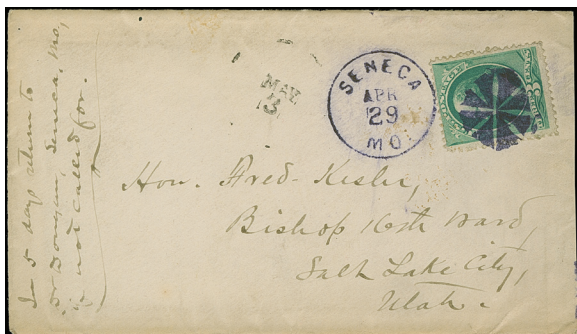 In 5 days return to
Seneca, Mo,
if not called for.
MAY
3
SENECA
APR
29
MO.
POSTAGE
Hon. Fred. Kesler,
Bishop 16th Ward,
Salt Lake City,
Utah.